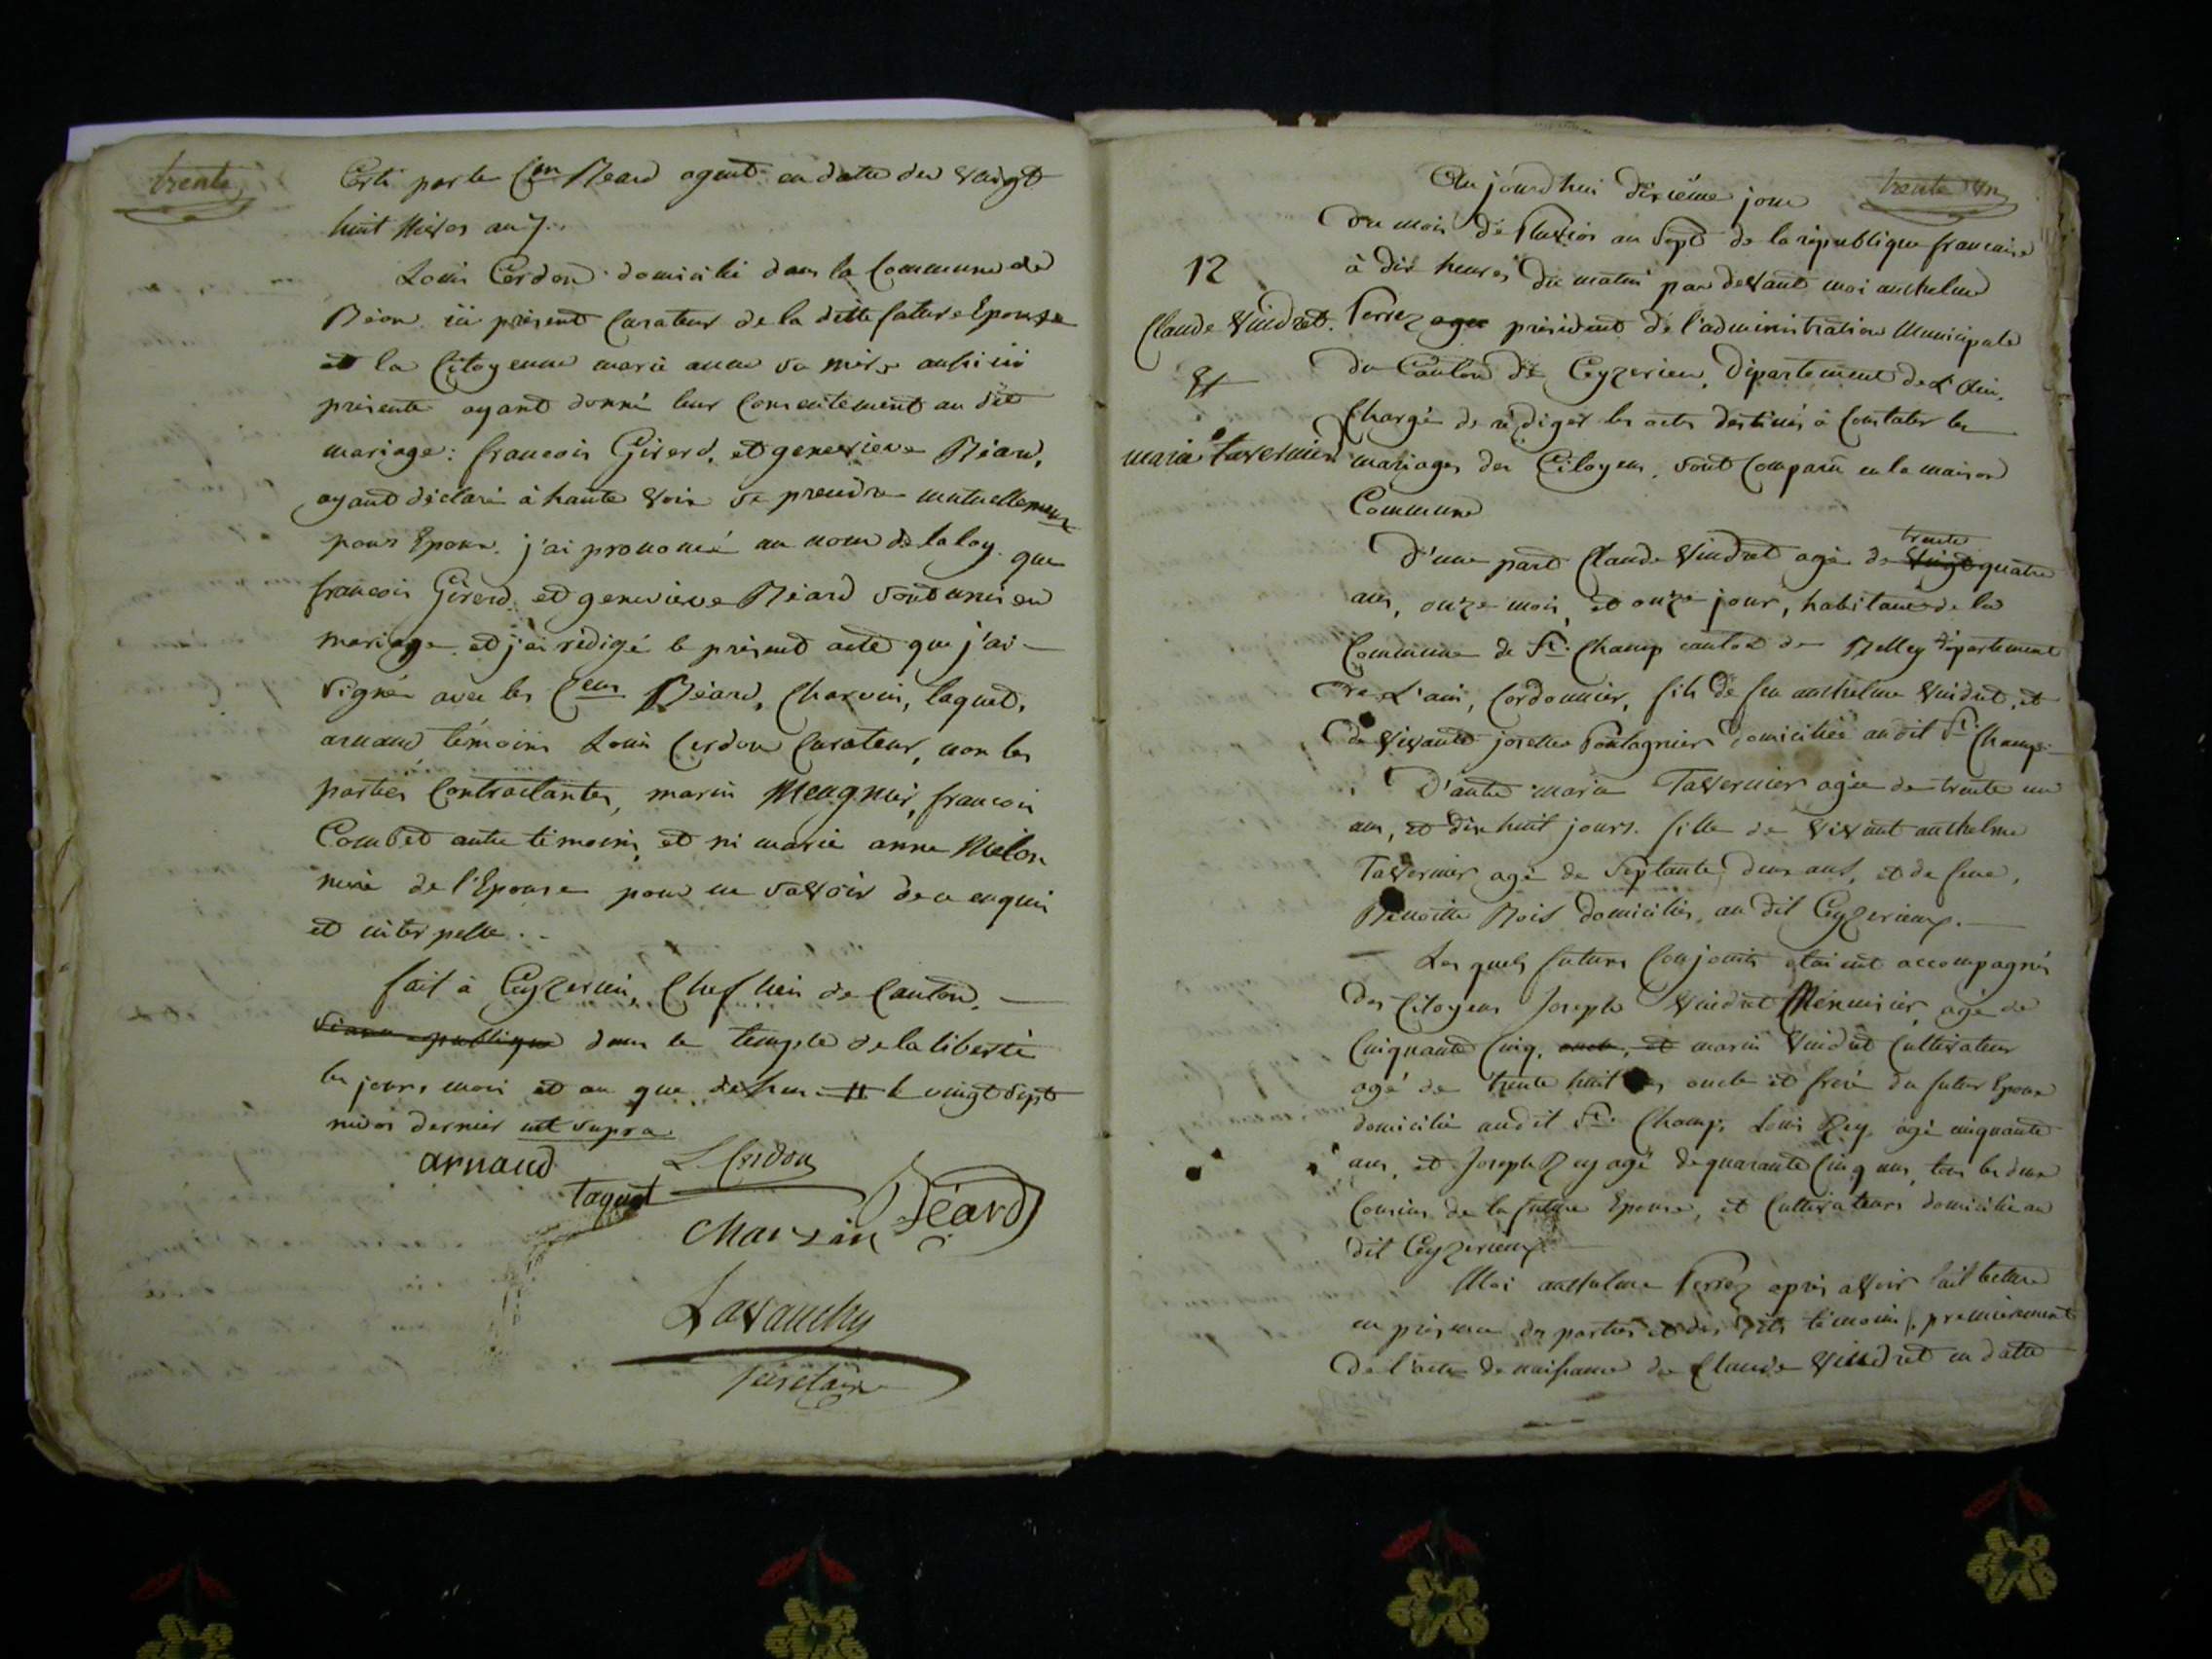 trente
Certi par le Cen Beard agent en datte du vingt
huit Nivos an 7.
Louis Cerdon domicilié dans la Commune de
Béon ici présent Curateur de la ditte future Epouse
et la Citoyenne marie anne sa mère aussi ici
présente ayant donné leur Consentement au dit
mariage: francois Girerd, et genevieve Béard,
ayant déclaré à haute voix se prendre mutuellement
pour Epoux. j'ai prononcé au nom de la loy que
francois Girerd et genevieve Béard sont unis en
mariage et j'ai rédigé le présent acte que j'ai
signé avec les Cens Béard, Charvin, taquet,
arnaud témoins Louis Cerdon Curateur, non les
parties Contractantes, marin Meugnier, francois
Combet autre témoins, et ni marie anne Melon
mère de l'Epouse pour ne savoir de ce enquis
et interpellé.
fait à Ceyzerieu, Chef lieu de Canton,
séance publique dans le temple de la liberté
les jours, mois et an que dessus le vingt sept
nivos dernier ut supra
arnaud L. Cerdon
taquet Béard
Charvin
Lavanchy
Secrétaire
trente un
Au jourd'hui dixième jour
du mois de Pluvios an Sept de la république francaise
12
à dix heures du matin par devant moi anthelme
Claude Vindret. Perrez agen président de l'administration Municipale
Et
du Canton de Ceyzerieu, Département de L'Ain,
Chargé de rédiger les actes destinés à Constater les
marie tavernier
mariages des Citoyens, sont Comparu en la maison
Commune
trente
D'une part Claude Vindret agé de vingt quatre
ans, onze mois, et onze jour, habitant de la
Commune de St. Champ canton de Belley département
de L'ain, Cordonnier, fils de feu anthelme Vindret, et
de vivante josette Pontagnier domiciliée au dit St. Champ.
D'autre marie Tavernier agée de trente un
ans, et dix huit jours. fille de vivant anthelme
Tavernier agé de Septante deux ans, et de feue,
Benoitte Bois domiciliés, au dit Ceyzerieux.
Les quels futurs Conjoints étaient accompagnés
des Citoyens Joseph Vindret Menuisier agé de
Cinquante Cinq, oncle, et marin Vindret Cultivateur
agé de trente huit ans oncle et frère du futur Epoux
domicilié au dit St. Champ, Louis Rey agé cinquante
ans, et Joseph Rey agé de quarante Cinq ans, tous les deux
Cousins de la future Epouse, et Cultivateurs domicilié au
dit Ceyzerieux.
Moi anthelme Perrez après avoir fait lecture
en présence des parties et des dits témoins, premièrement
De l'acte de naissance de Claude Vindret en datte